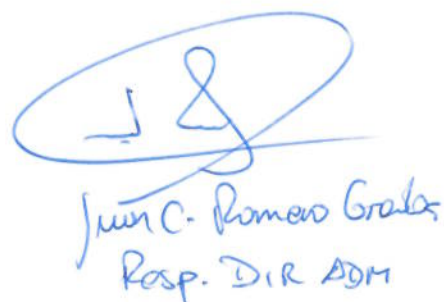 Juan C. Romero
Resp. DIR ADM